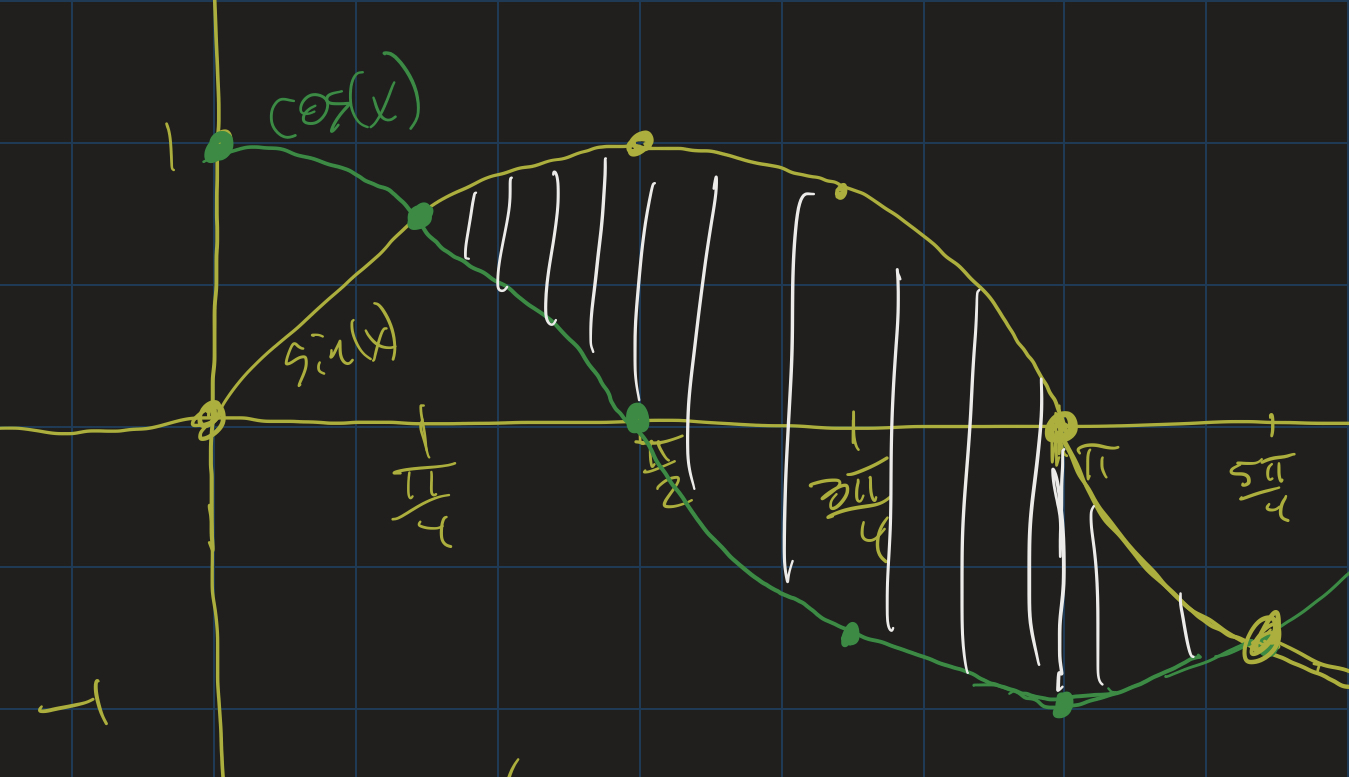 cos(x)
1
sin(x)
π/4
π/2
3π/4
π
5π/4
-1